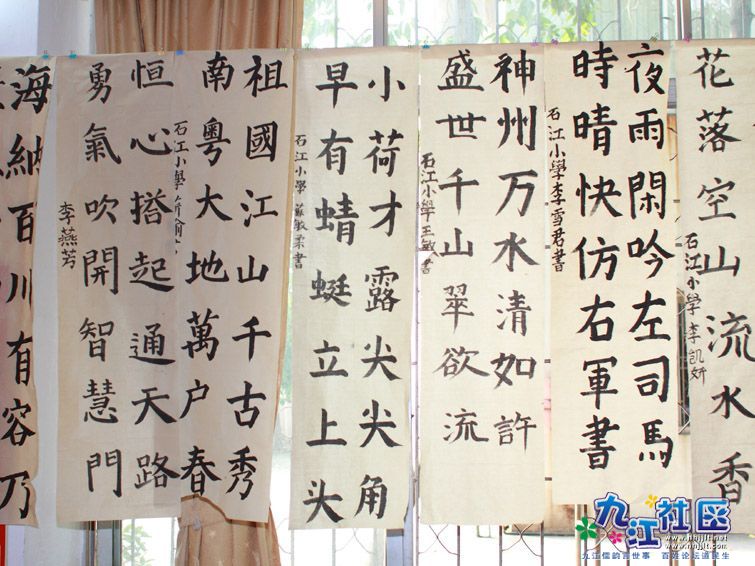 花落空山流水香
石江小學 李凱妍
夜雨閑吟左司馬
時晴快仿右軍書
石江小學李雪君書
神州万水清如許
盛世千山翠欲流
石江小學王敏書
小荷才露尖尖角
早有蜻蜓立上头
石江小學 蘇敏柔書
祖國江山千古秀
南粤大地萬户春
石江小學
恒心搭起通天路
勇氣吹開智慧門
李燕芳
海納百川有容乃
九江社区
九江儒韵言世事 百姓论坛道民生